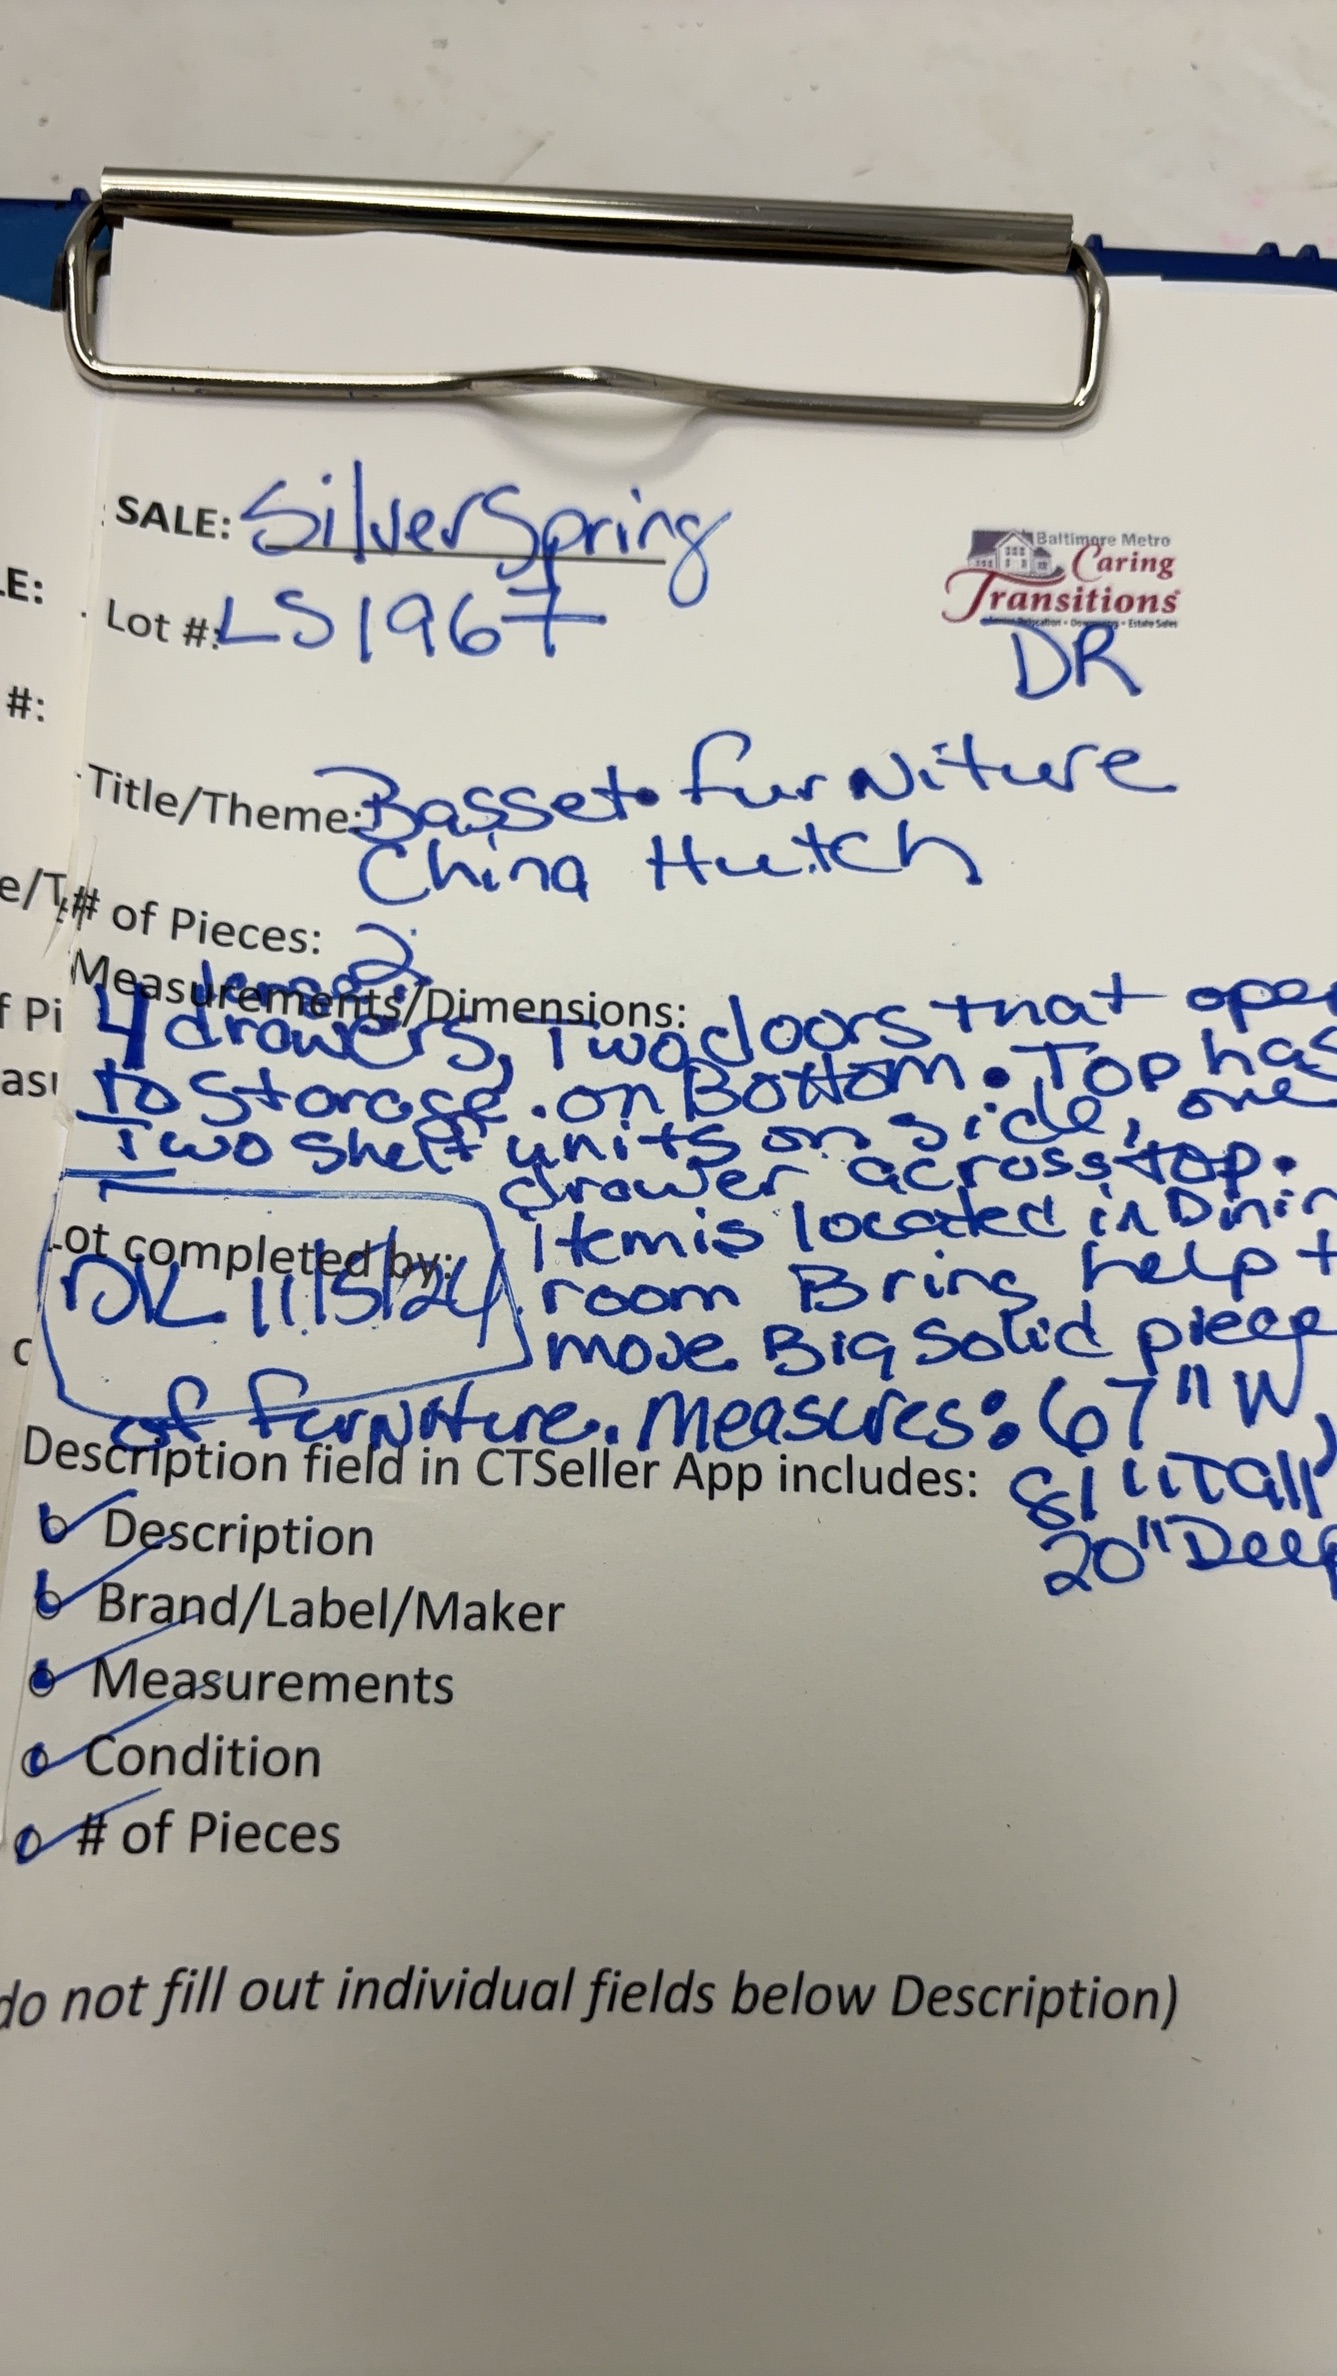 SALE: SilverSpring
Baltimore Metro
Caring
Transitions
E:
Lot #: LS1967
DR
#:
Title/Theme: Basset Furniture
China Hutch
e/T
# of Pieces: 2
Measurements/Dimensions:
f Pi
4 large drawers, Two doors that open
to storage. on Bottom. Top has
Two shelf units on side, one
drawer across top.
Lot completed by:
11/5/24
Item is located in Dinin
room Bring help t
move Big solid piece
of furniture. Measures: 67" W,
Description field in CTSeller App includes:
81" Tall
20" Deep
Description
Brand/Label/Maker
Measurements
Condition
# of Pieces
do not fill out individual fields below Description)